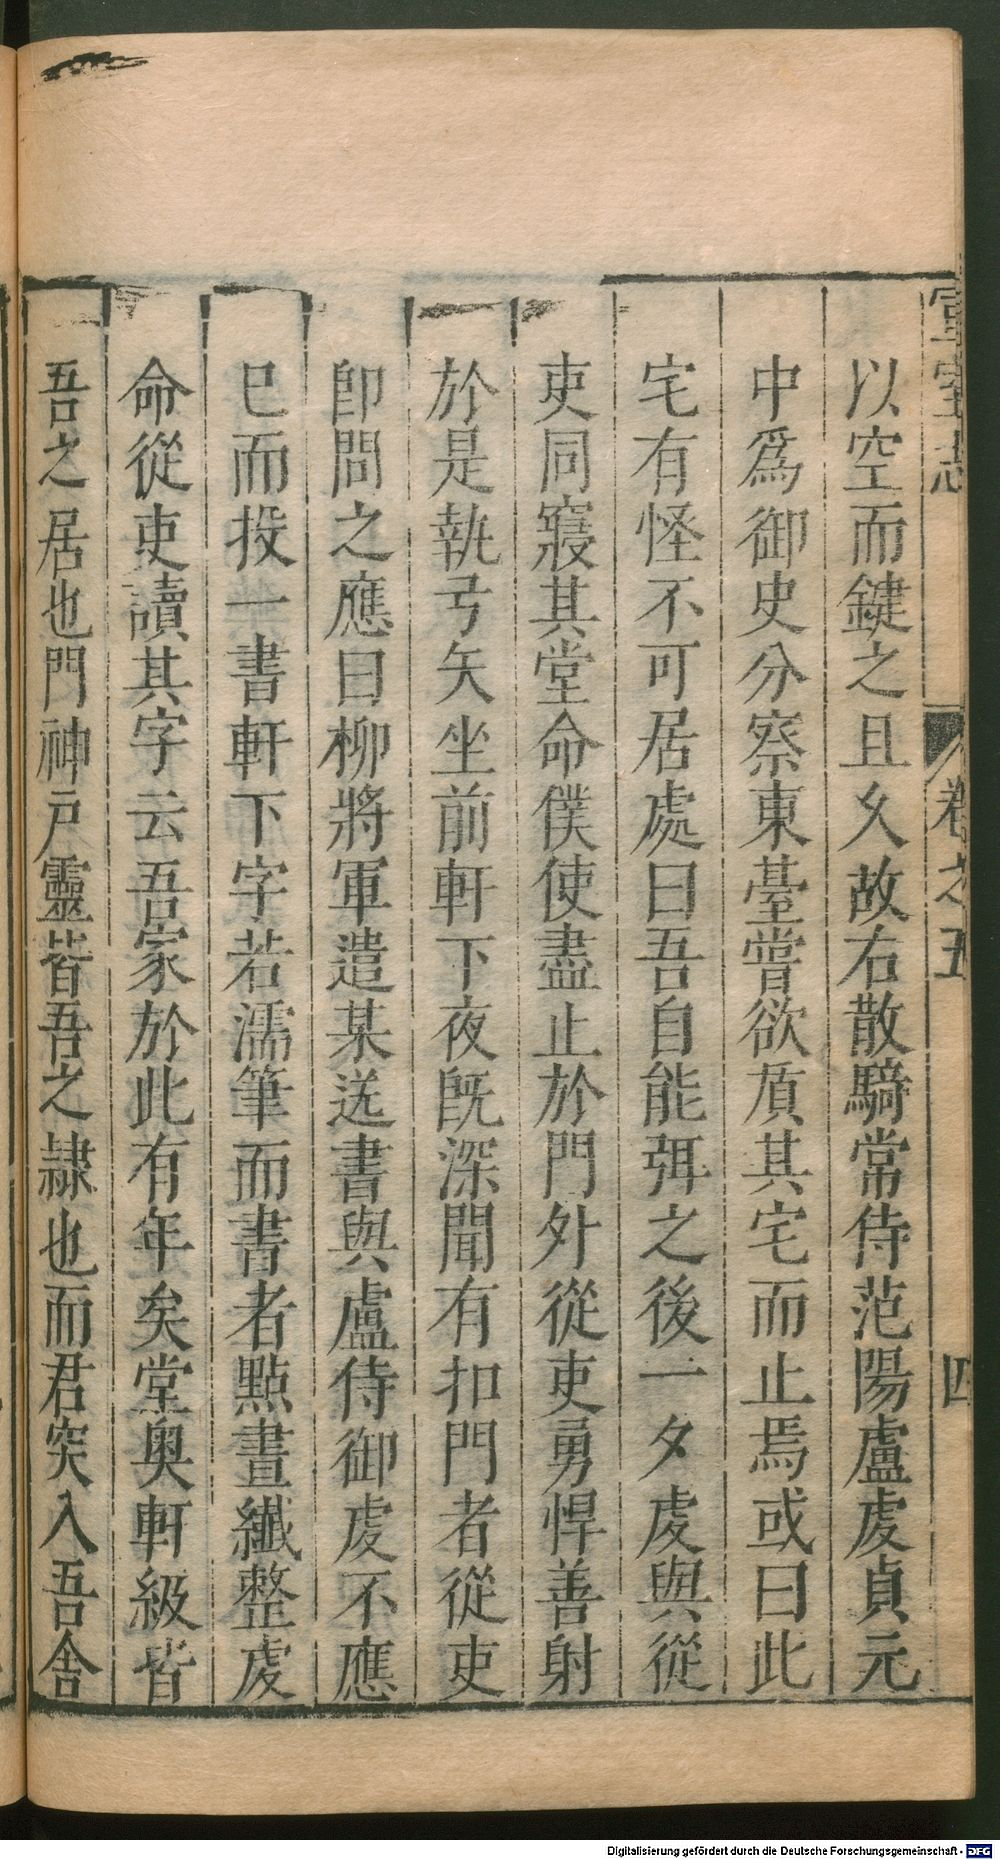 宣室志 卷之五 四
以空而鍵之且久故右散騎常侍范陽盧虔貞元
中爲御史分察東臺嘗欲貭其宅而止焉或曰此
宅有怪不可居處曰吾自能弭之後一夕虔與從
吏同寢其堂命僕使盡止於門外從吏勇悍善射
於是執弓矢坐前軒下夜旣深聞有扣門者從吏
卽問之應曰柳將軍遣某送書與盧侍御虔不應
已而投一書軒下字若濡筆而書者點畫纖整虔
命從吏讀其字云吾家於此有年矣堂奧軒級皆
吾之居也門神戶靈皆吾之隷也而君突入吾舍
Digitalisierung gefördert durch die Deutsche Forschungsgemeinschaft - DFG